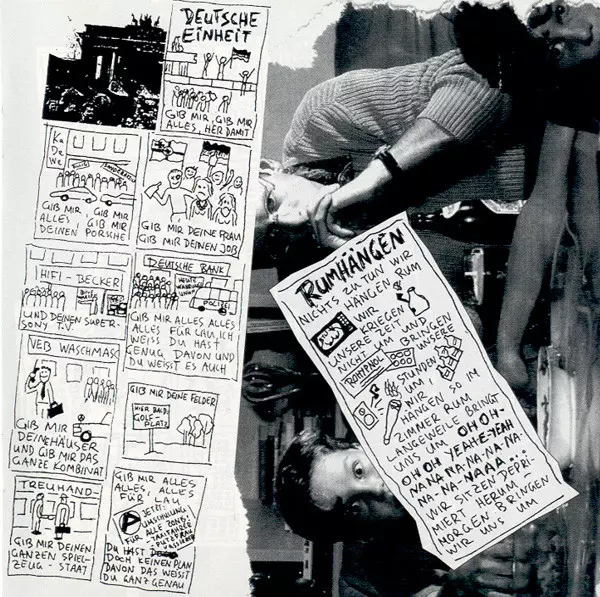 DEUTSCHE
EINHEIT
GIB MIR, GIB MIR
ALLES, HER DAMIT
Ka
De
We
GIB MIR
ALLES, GIB MIR
DEINEN PORSCHE
GIB MIR DEINE FRAU
GIB MIR DEINEN JOB
HIFI-BECKER
UND DEINEN SUPER-
SONY T.V.
DEUTSCHE BANK
GIB MIR ALLES ALLES
ALLES FÜR LAU, ICH
WEISS DU HAST
GENUG DAVON UND
DU WEISST ES AUCH
VEB WASCHMASCH
GIB MIR
DEINE HÄUSER
UND GIB MIR DAS
GANZE KOMBINAT
GIB MIR DEINE FELDER
HIER BALD:
GOLF-
PLATZ
TREUHAND-
GIB MIR DEINEN
GANZEN SPIEL-
ZEUG-STAAT
GIB MIR ALLES
ALLES, ALLES
FÜR LAU
JETZT:
UMSCHULUNG
FÜR ALLE ZONIS
DU HAST
DOCH KEINEN PLAN
DAVON DAS WEISST
DU GANZ GENAU
RUMHÄNGEN
NICHTS ZU TUN WIR
HÄNGEN RUM
WIR
KRIEGEN
UNSERE ZEIT
NICHT UM UND
BRINGEN
ROHPNOL
UNSERE
STUNDEN
UM,
WIR
HÄNGEN SO IM
ZIMMER RUM
LANGEWEILE BRINGT
UNS UM OH OH-
OH OH YEAH-E-YEAH
NANA NA-NA-NA-NA-
NA-NA-NAAA...
WIR SITZEN DEPRI-
MIERT HERUM-
MORGEN BRINGEN
WIR UNS UM